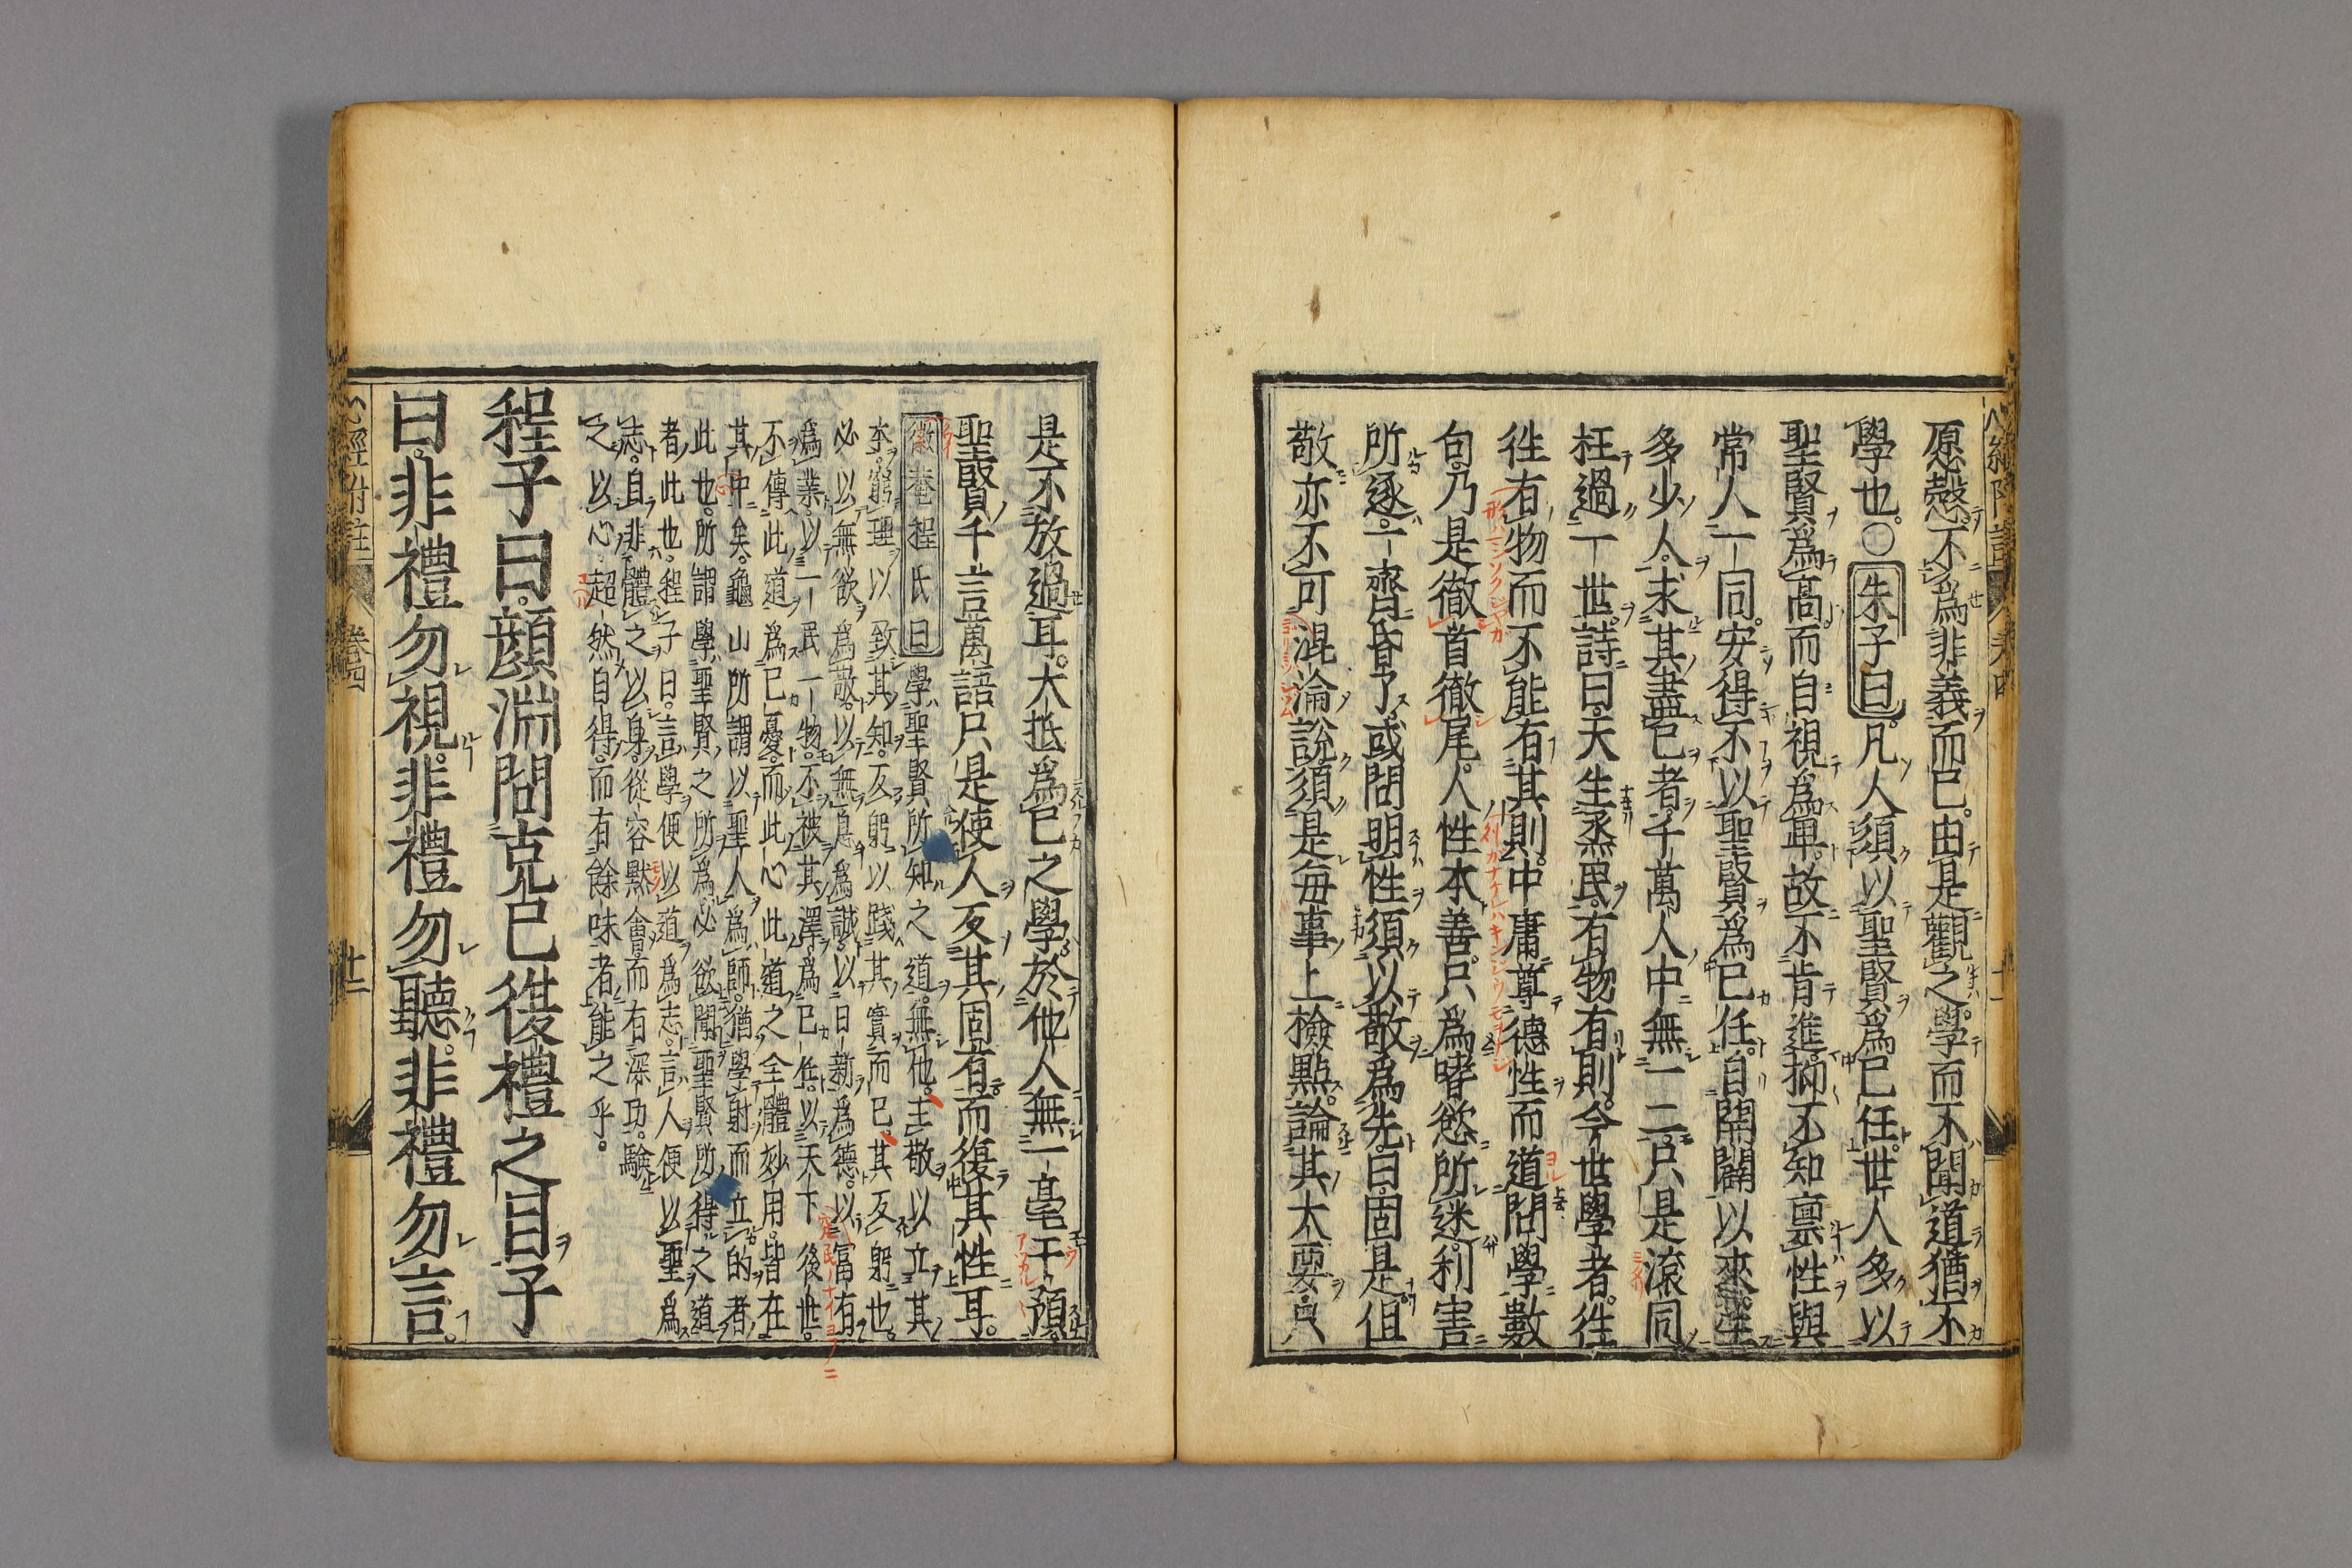 愿慤不爲非義而已由是觀之學而不聞道猶不
學也○朱子曰凡人須以聖賢爲己任世人多以
聖賢爲高而自視爲卑故不肯進抑不知稟性與
常人一同安得不以聖賢爲己任自開闢以來生
多少人求其盡己者千萬人中無一二只是滾同
枉過一世詩曰天生烝民有物有則今世學者徃
徃有物而不能有其則中庸尊德性而道問學數
句乃是徹首徹尾人性本善只爲嗜慾所迷利害
所逐一齊昏了或問明性須以敬爲先曰固是但
敬亦不可混淪說須是每事上檢點論其大要只
是不放過耳大抵爲己之學於他人無一毫干預
聖賢千言萬語只是使人反其固有而復其性耳
徽菴程氏曰學聖賢所知之道無他主敬以立其
本窮理以致其知反躬以踐其實而已其反躬也
必以無欲爲敬以無息爲誠以日新爲德以富有
爲業以一民一物不被其澤爲己任以天下後世
不傳此道爲己憂而此心此道之全體妙用皆在
其中矣龜山所謂以聖人爲師猶學射而立的者
此也所謂學聖賢之所爲必欲聞聖賢所得之道
者此也程子曰言學便以道爲志言人便以聖爲
志自非體之以身從容默會而有深功驗
之以心超然自得而有餘味者能之乎
程子曰顔淵問克己復禮之目子
曰非禮勿視非禮勿聽非禮勿言
心經附註 卷四 十二